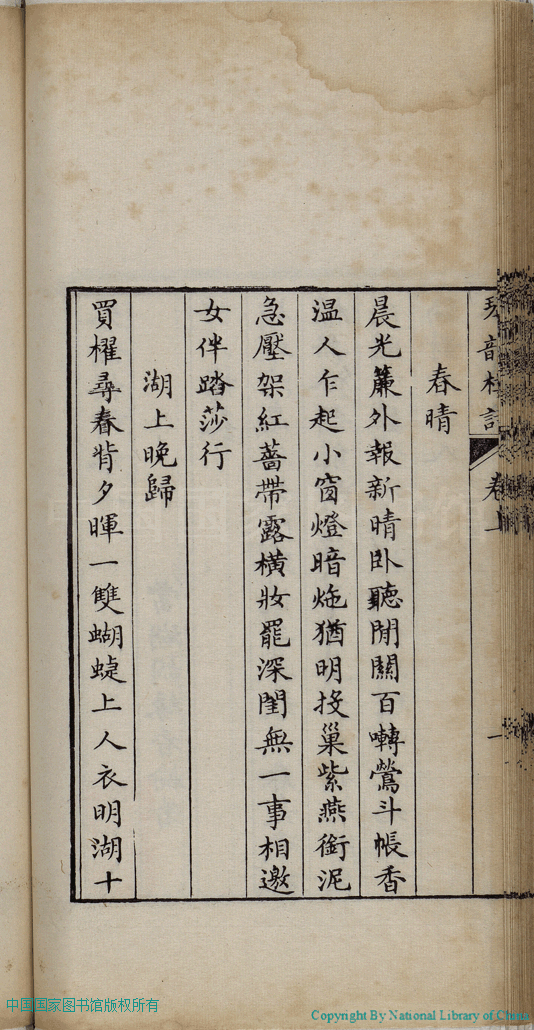 春晴
晨光簾外報新晴臥聽閒關百囀鶯斗帳香
温人乍起小窗燈暗炧猶明投巢紫燕銜泥
急壓架紅薔帶露橫妝罷深閨無一事相邀
女伴踏莎行
湖上晚歸
買櫂尋春背夕暉一雙蝴蜨上人衣明湖十
中国国家图书馆版权所有
Copyright By National Library of China